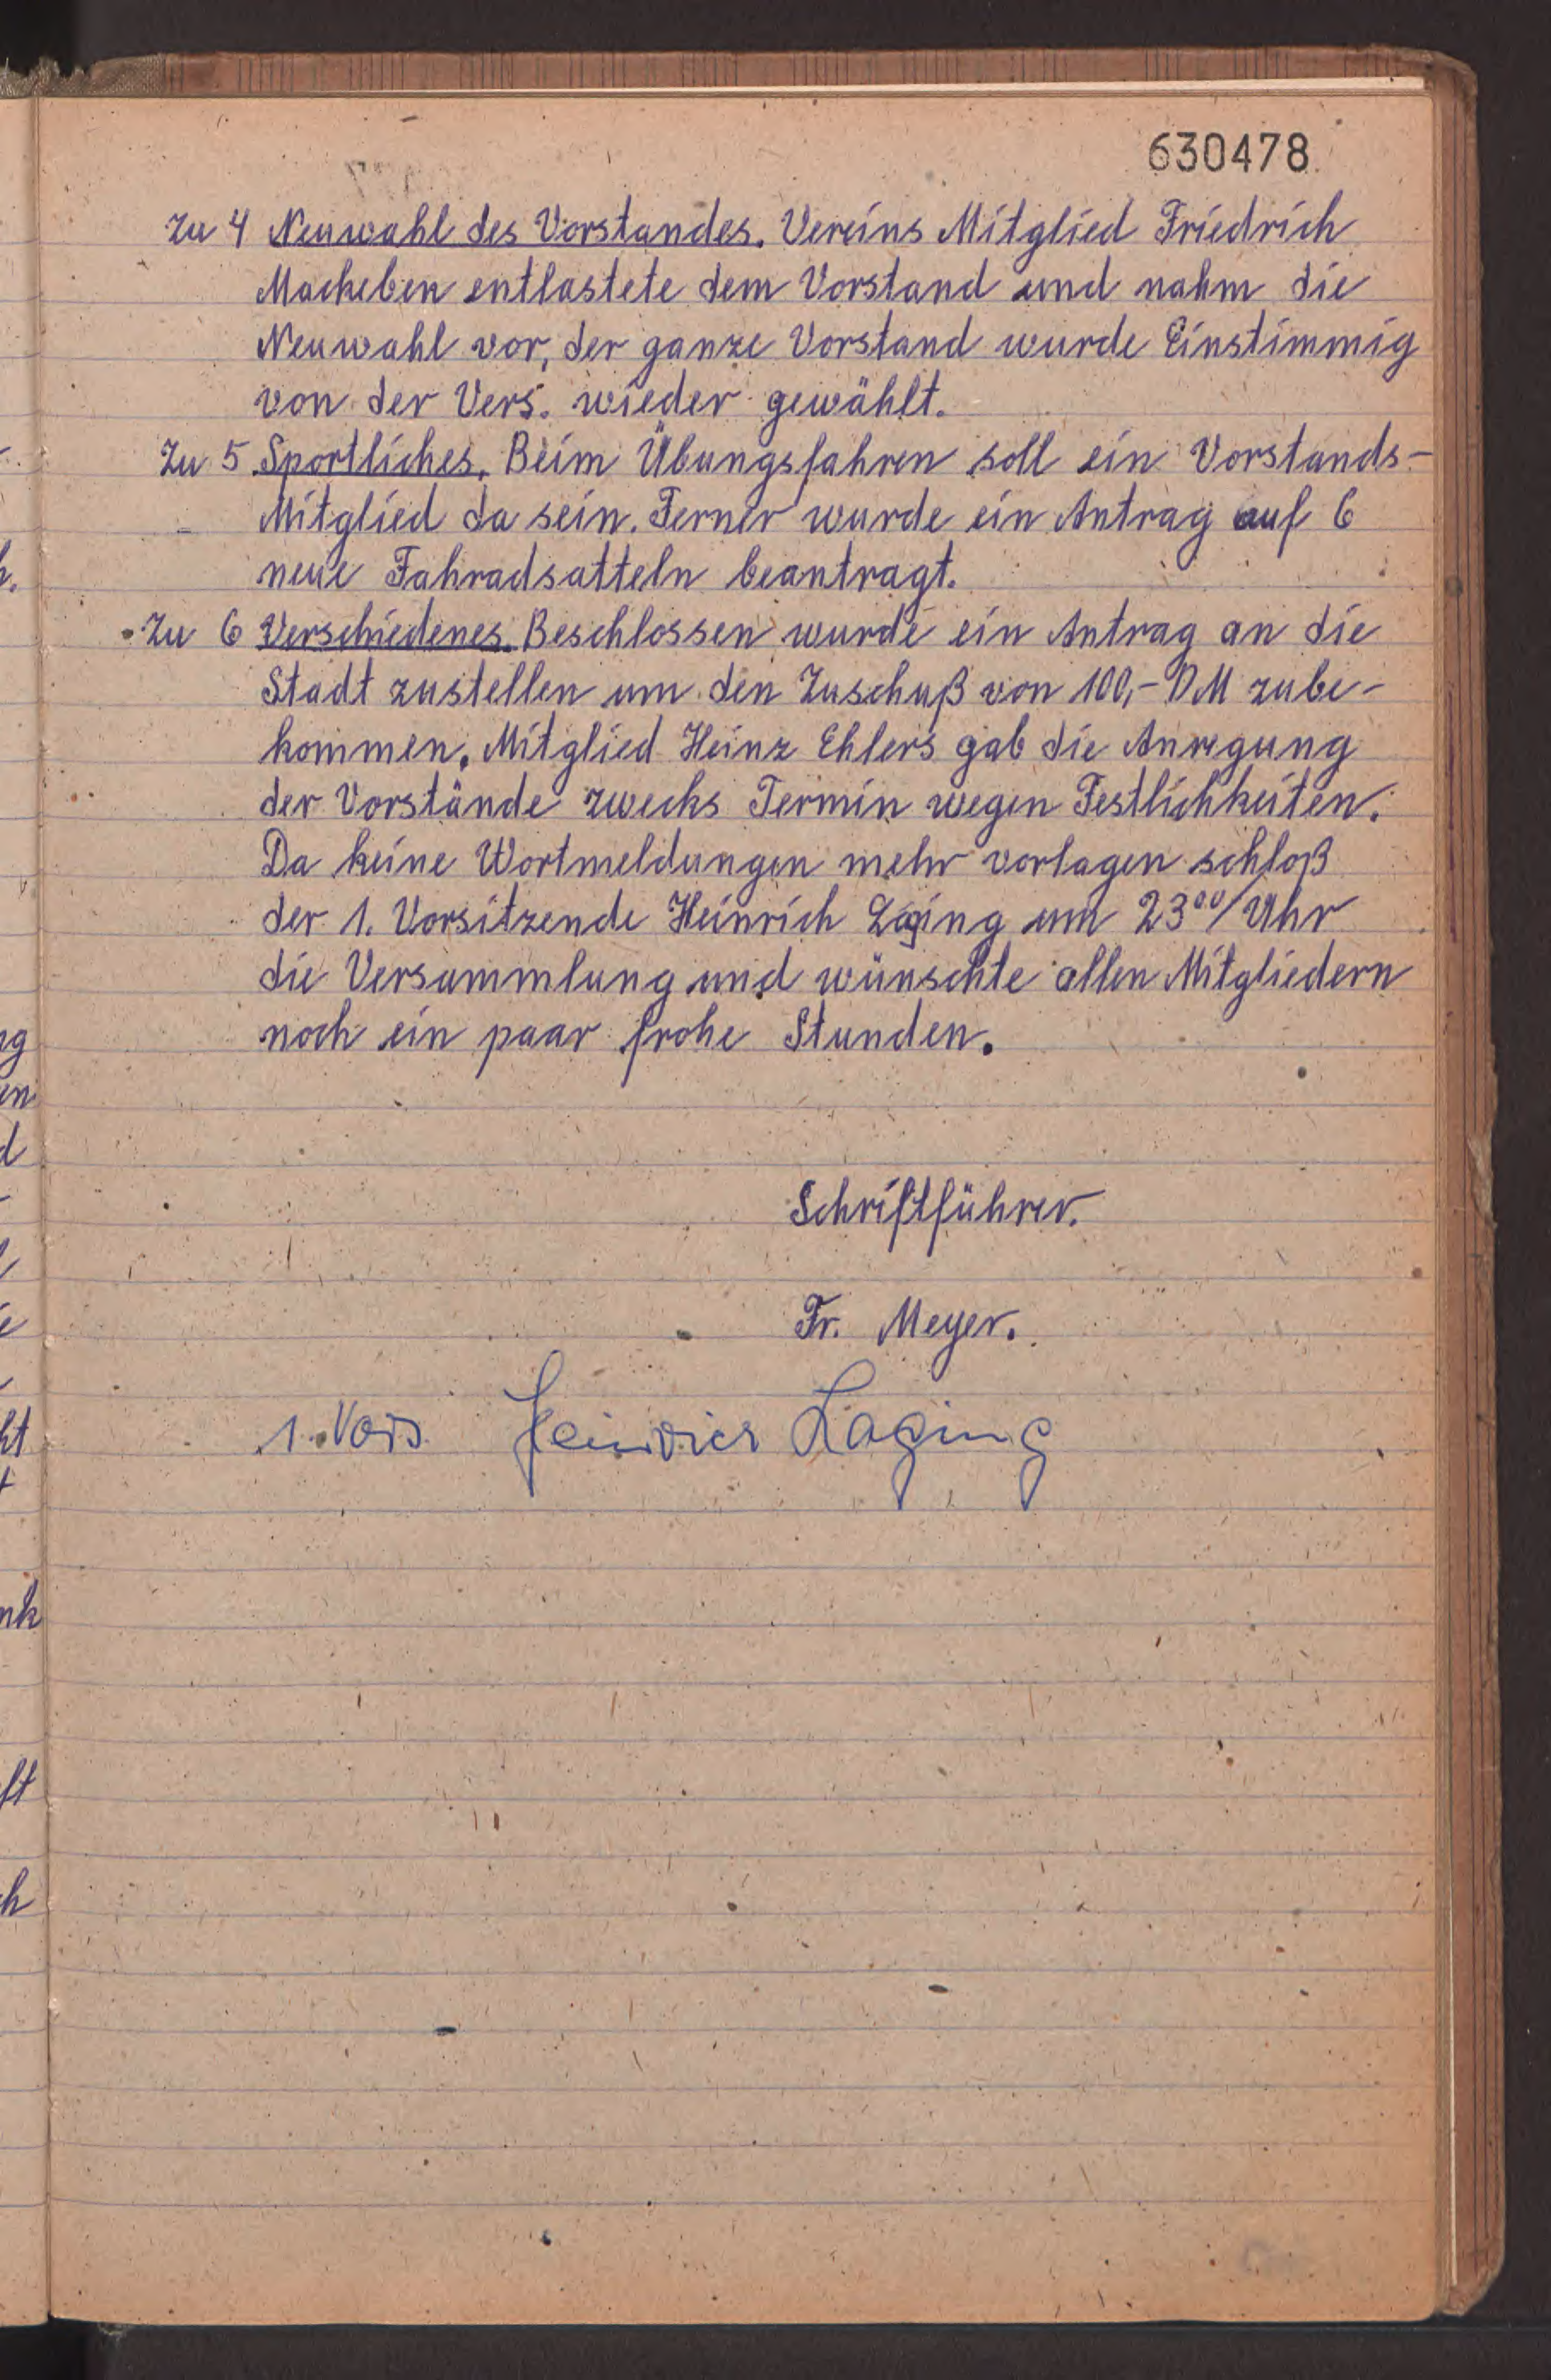 630478
Zu 4 Neuwahl des Vorstandes. Vereins Mitglied Friedrich
Mackeben entlastete dem Vorstand und nahm die
Neuwahl vor, der ganze Vorstand wurde Einstimmig
von der Vers. wieder gewählt.
Zu 5 Sportliches. Beim Übungsfahren soll ein Vorstands-
Mitglied da sein. Ferner wurde ein Antrag auf 6
neue Fahradsatteln beantragt.
Zu 6 Verschiedenes. Beschlossen wurde ein Antrag an die
Stadt zustellen um den Zuschuß von 100,- DM zube-
kommen. Mitglied Heinz Ehlers gab die Anregung
der Vorstände zwecks Termin wegen Festlichkeiten.
Da keine Wortmeldungen mehr vorlagen schloß
der 1. Vorsitzende Heinrich Laging um 23⁰⁰/Uhr
die Versammlung und wünschte allen Mitgliedern
noch ein paar frohe Stunden.
Schriftführer.
Fr. Meyer.
1. Vors Heinrich Laging